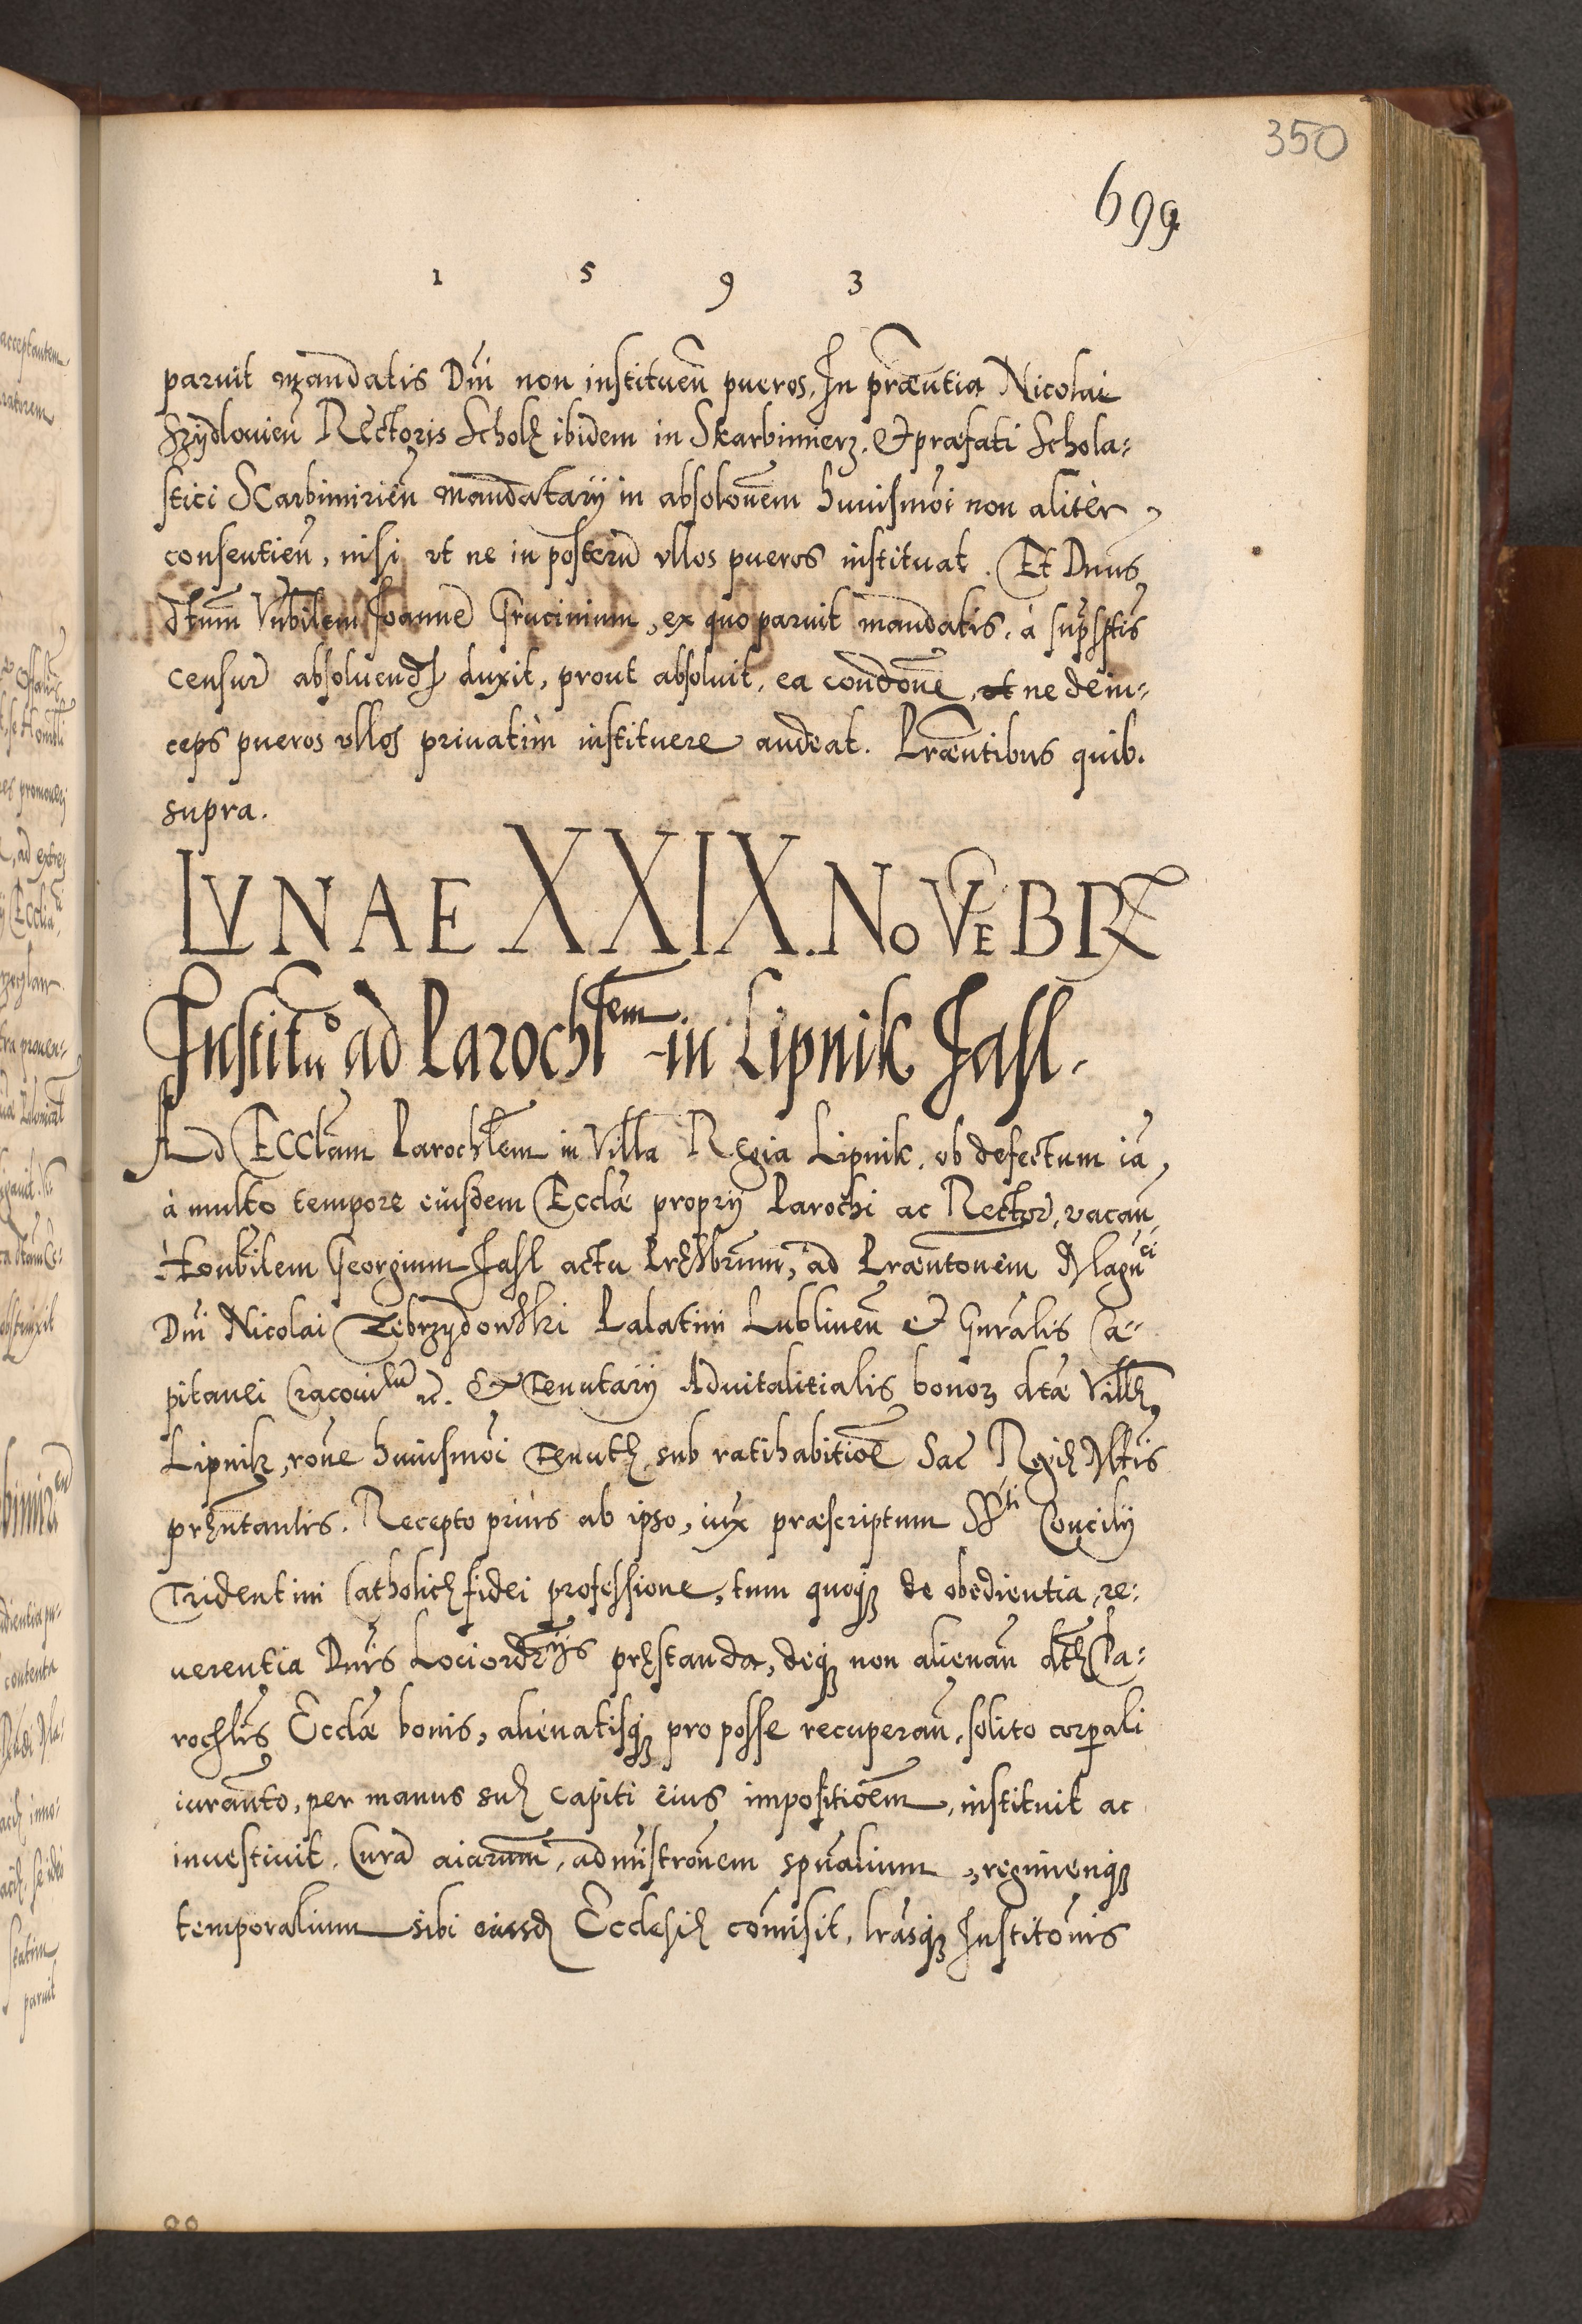 350
699
1 5 9 3
paruit mandatis Dni non instituen̄ pueros. In præntia Nicolai
Szydlouien̄ Rectoris Scholę ibidem in Skarbimierz. Et præfati Schola-
stici Scarbimirien̄ mandatarij in absolonem huiusmoi non aliter
consentien̄, nisi vt ne in posterū vllos pueros instituat. Et Dnus
dtum Vnbilem Joannē Grucinium, ex quo paruit mandatis, à supsptis
censur̄ absoluend̄ duxit, prout absoluit, ea condone, vt ne dein-
ceps pueros vllos priuatim instituere audeat. Præntibus quib.
supra.
LVNAE XXIX. NOVĒBR
Institūo ad Parochlem in Lipnik Jasl.
Ad Ecclam Parochlem in Villa Regia Lipnik, ob defectum iā
à multo tempore eiusdem Ecclæ proprij Parochi ac Rector̄, vacan̄
Honbilem Georgium Jasl actu Prēsbrum, ad Præntonem Magn̄ci
Dni Nicolai Zebrzydowski Palatini Lublinen̄ et Gnralis Ca-
pitanei Cracouien̄ &c. Et Tenutarij Aduitalitialis bonoꝝ dtæ Villę
Lipnik, rone huiusmoi Tenutę sub ratihabitioē Sac Regię Mtis
pręntantis. Recepto prius ab ipso, iux præscriptum Sti Concilij
Tridentini Catholicę fidei professione, tum quoqꝫ de obedientia, re-
uerentia Dnis Lociordrijs pręstanda, deqꝫ non alienan̄ dtę Pa-
rochlis Ecclæ bonis, alienatisqꝫ pro posse recuperan̄, solito corpali
iuranto, per manus suę capiti eius impositioem, instituit ac
inuestiuit. Curā aiarum, admistronem spualium, regimenqꝫ
temporalium sibi eiusd Ecclesię comisit, lrasqꝫ Institonis